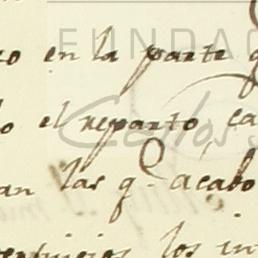 FUNDAC
en la parte q
Carlos
el reparto, ca
an las q. acabo
los in